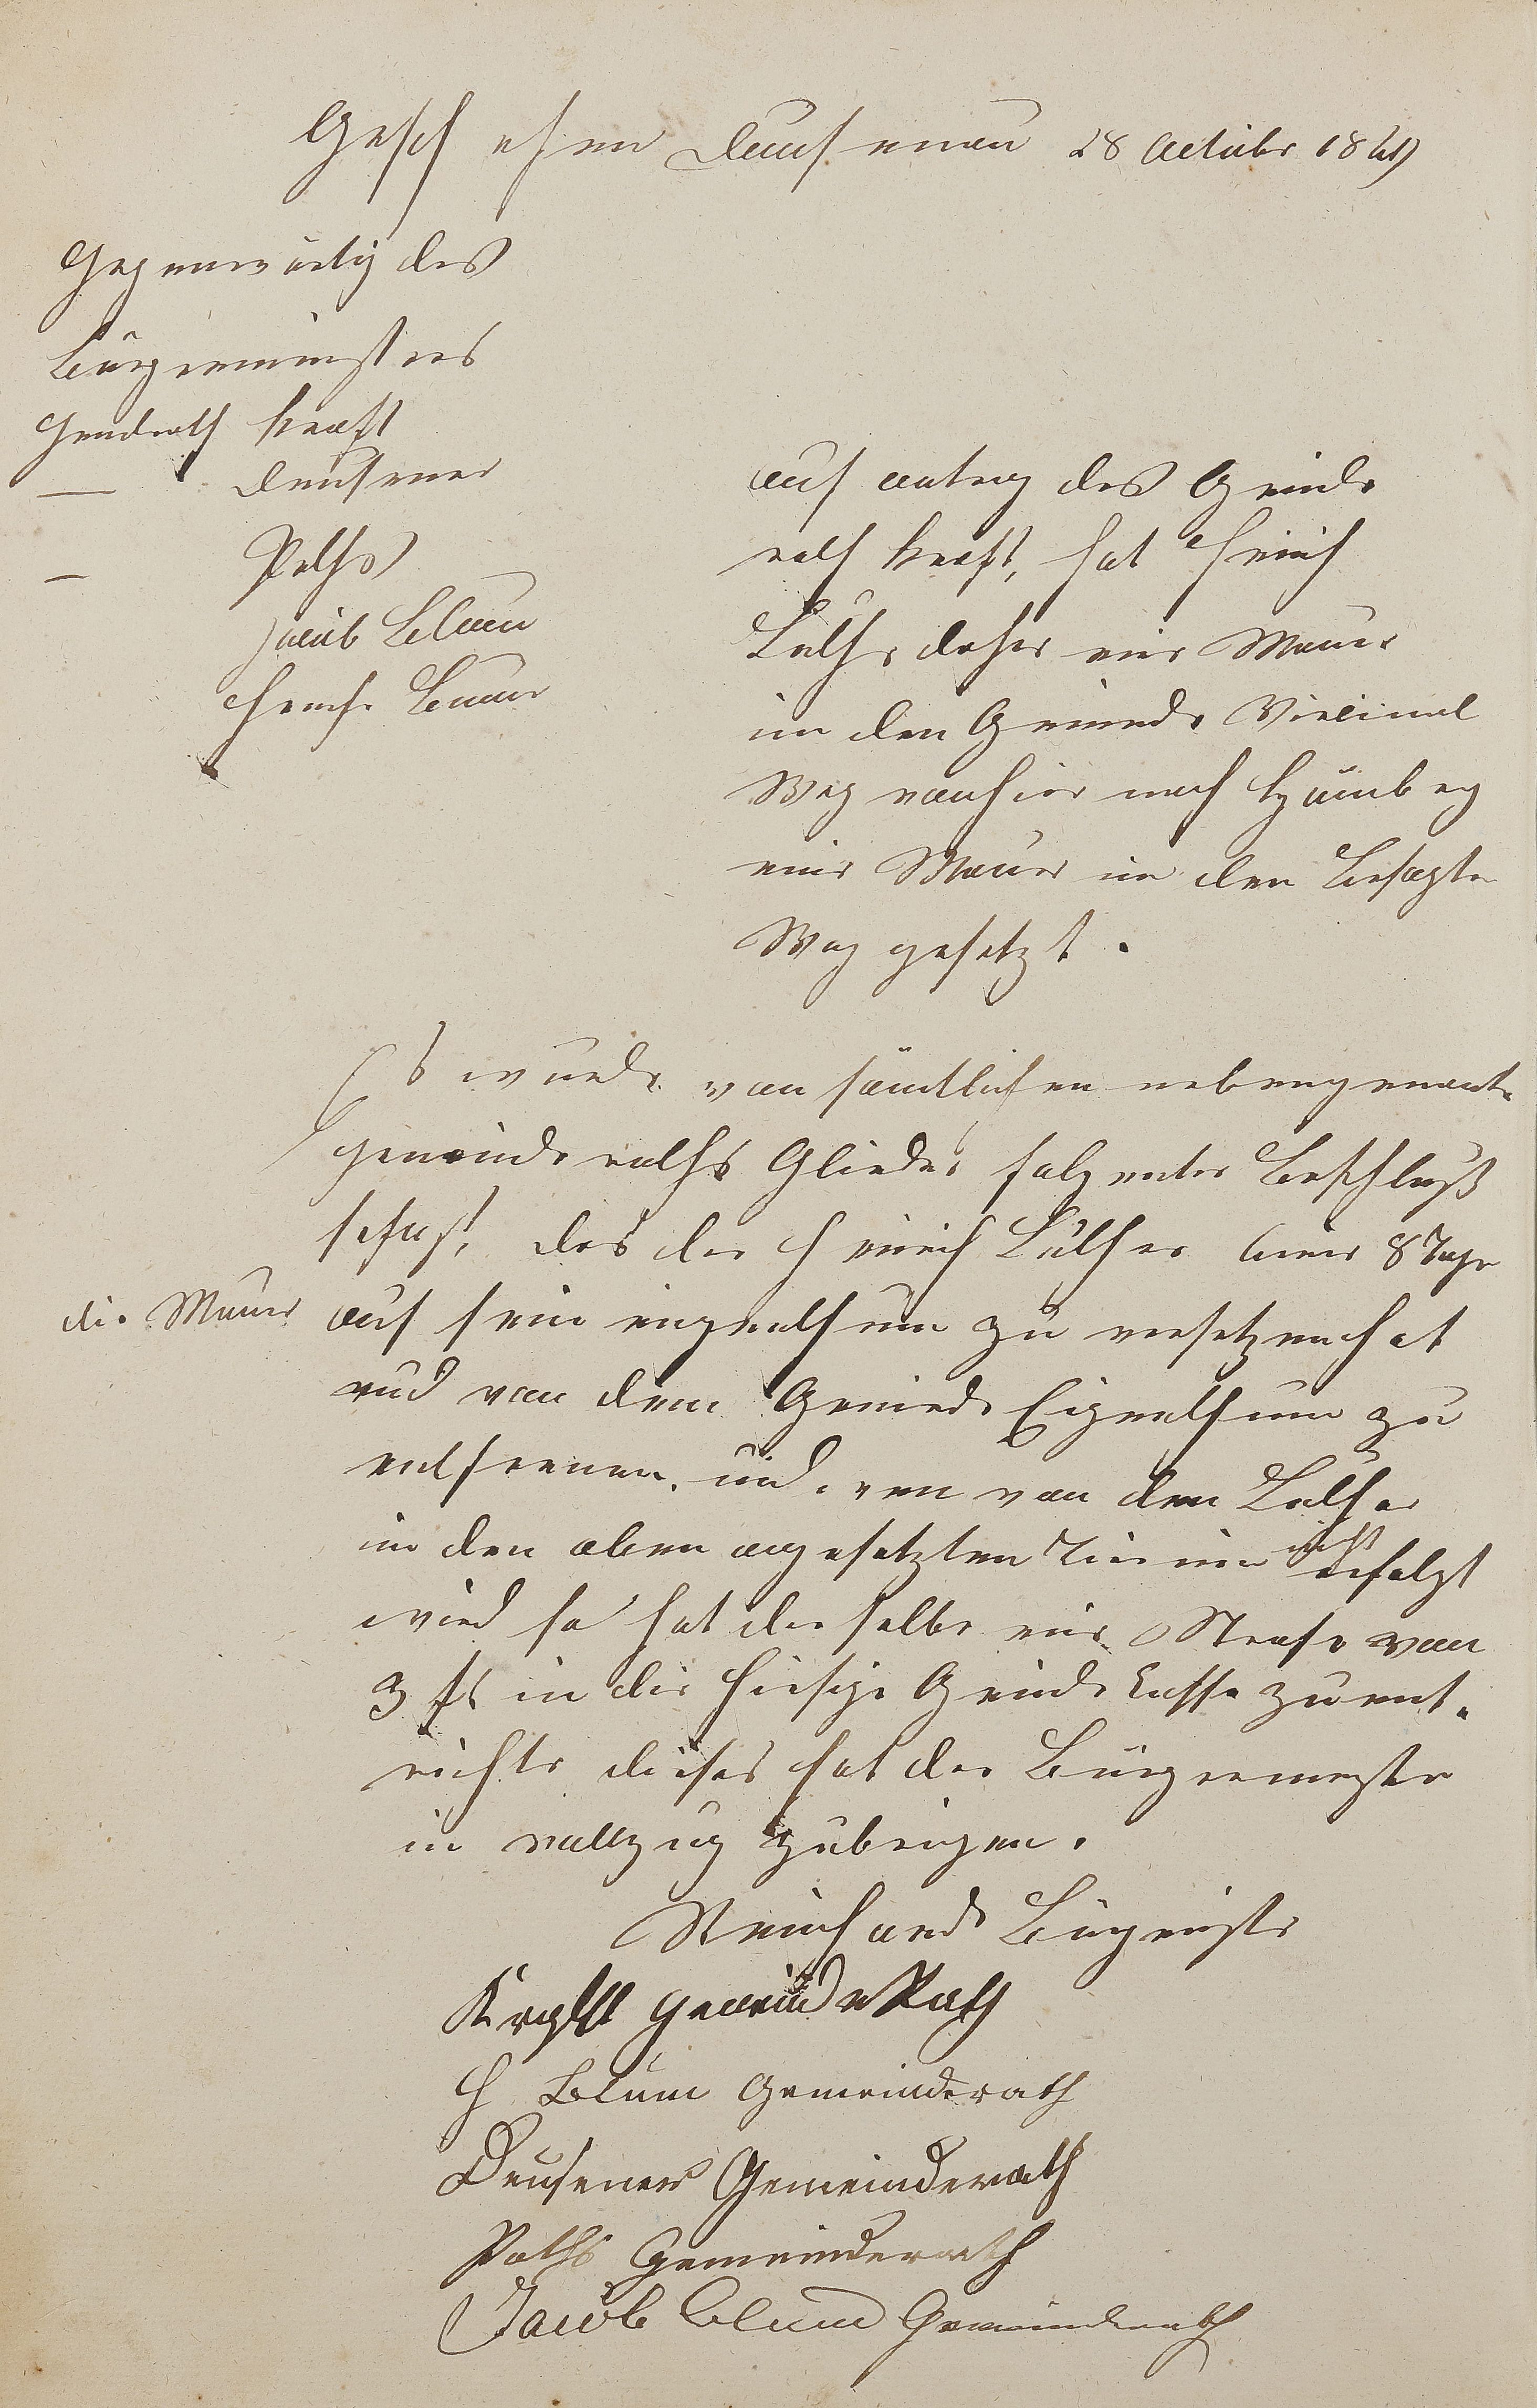 Geschehen Dausenau 28 October 1849
Gegenwärtig des
Bürgermeisters
Gemdrath Kraft
— Deusener
— Poths
Jacob Blum
Heinch Blum
auf antrag des Gemeinde
rath Kraft, hat Heinrich
Luther daher eine Mauer
in den Gemeinde Vicinal
Weg von hier nach Hömberg
eine Mauer in den besagten
Weg gesetzt.
Es wurde von sämtlichen nebengenante
gemeinde raths Glieder folgenter Beschluß
gefast, das der Heinrich Luther 8 Tage
die Mauer auf sein eigenthum zu versetzen hat
und von dem Gemeinde Eigenthum zu
entfernen. und wen von den Luther
in den oben angesetzten Termin nicht erfolgt
wird so hat der selbe eine Strafe von
3 fl in die hiesige Gemeinde Casse zu ent-
richte dieses hat der Bürgermeister
in vollzug zubringen.
Reinhard Bürgermeister
Krafft gemeinde Rath
H Blum Gemeinderath
Deusener Gemeinderath
Poths Gemeinderath
Jacob Blum Gemeinderath